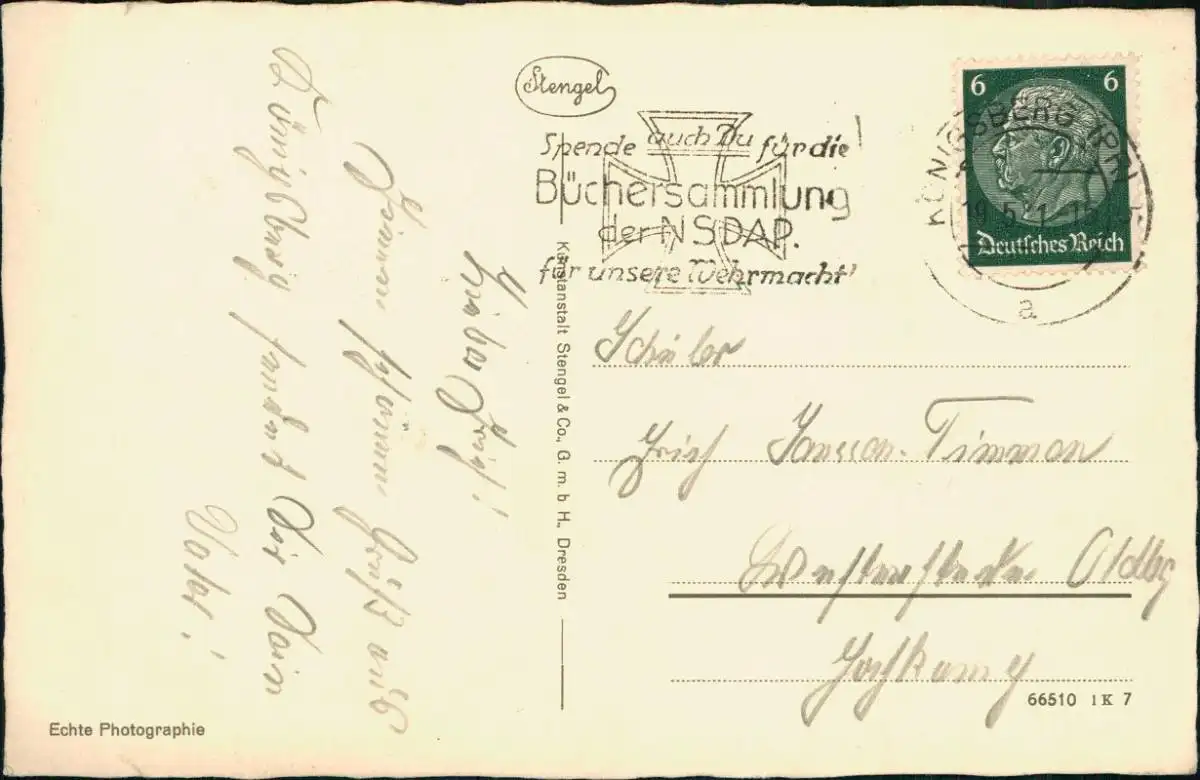 Stengel
Spende auch Du für die
Büchersammlung
der NSDAP.
für unsere Wehrmacht!
6 6
KÖNIGSBERG (PR)
19.5.41-15
Deutsches Reich
a
Lieber Erich!
Einen schönen Gruß aus
Königsberg sendet Dir Dein
Vater!
Schüler
Erich Janssen-Timmen
Westerstede Oldbg
Kunstanstalt Stengel & Co., G. m. b H., Dresden
Echte Photographie
66510 1K 7